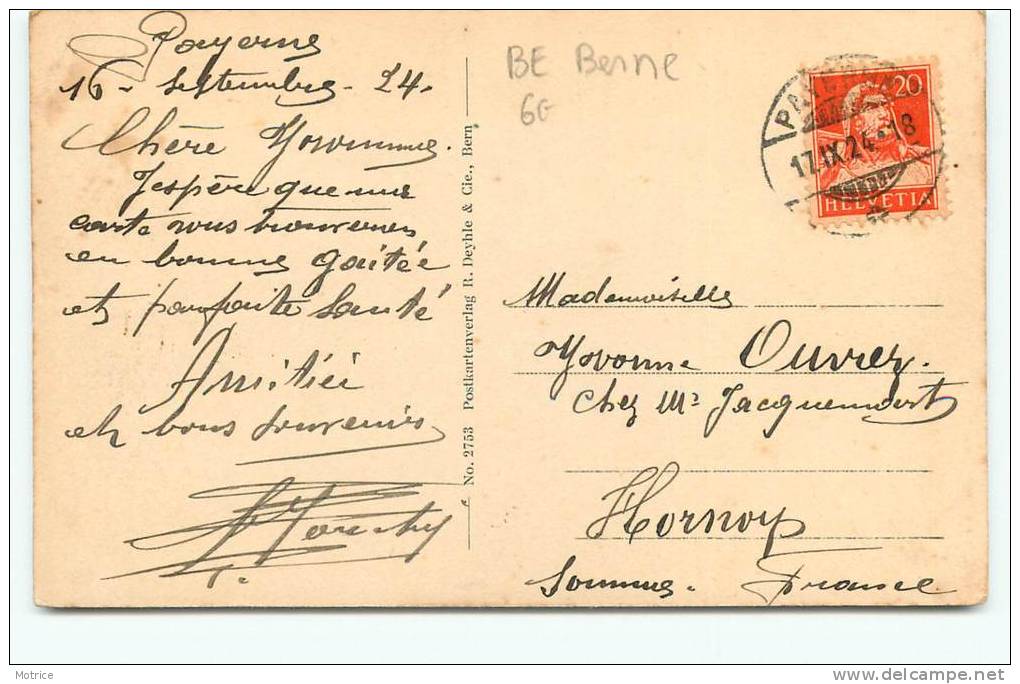 Payerne
16 - Septembre - 24.
Chère Yvonne.
J'espère que ma
carte vous trouvera
en bonne gaitée
et parfaite santé
Amitiée
et bons souvenirs
BE Berne
No. 2753 Postkartenverlag R. Deyhle & Cie., Bern
17.IX.24-18
20
HELVETIA
Mademoiselle
Yvonne Ouvrez.
chez Mr Jacquemart
Hornoy
Somme. France
Motrice
www.delcampe.net